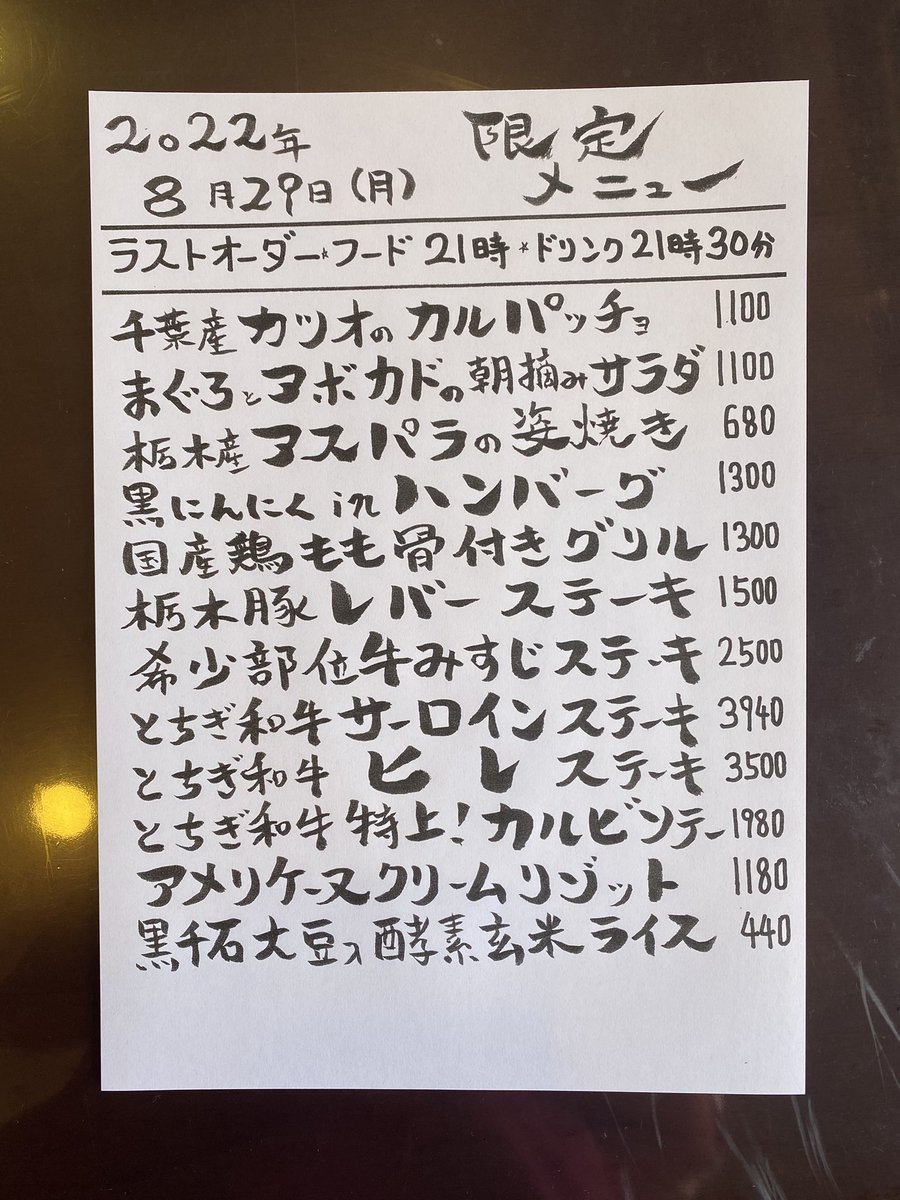 2022年 限定
8月29日(月) メニュー
ラストオーダー*フード21時*ドリンク21時30分
千葉産カツオのカルパッチョ 1100
まぐろとアボカドの朝摘みサラダ 1100
栃木産アスパラの姿焼き 680
黒にんにくinハンバーグ 1300
国産鶏もも骨付きグリル 1300
栃木豚レバーステーキ 1500
希少部位牛みすじステーキ 2500
とちぎ和牛サーロインステーキ 3940
とちぎ和牛ヒレステーキ 3500
とちぎ和牛特上!カルビソテー 1980
アメリケーヌクリームリゾット 1180
黒千石大豆入酵素玄米ライス 440